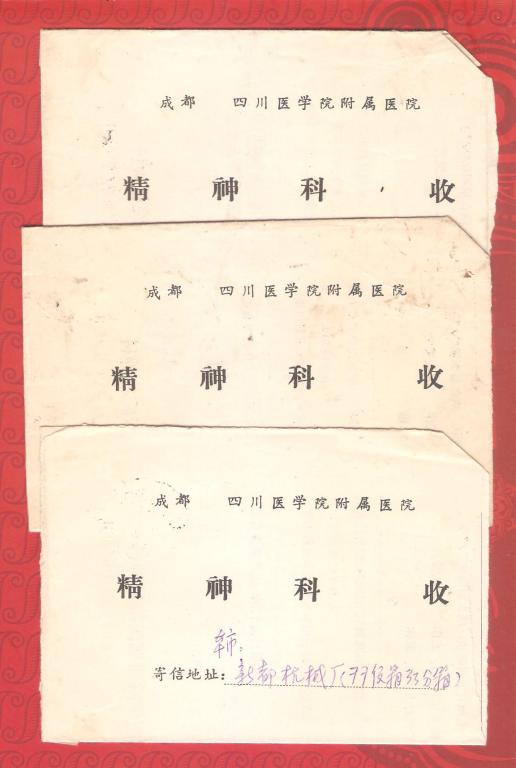 成都 四川医学院附属医院
精神科 收
成都 四川医学院附属医院
精神科 收
成都 四川医学院附属医院
精神科 收
寄信地址: 新都机械厂